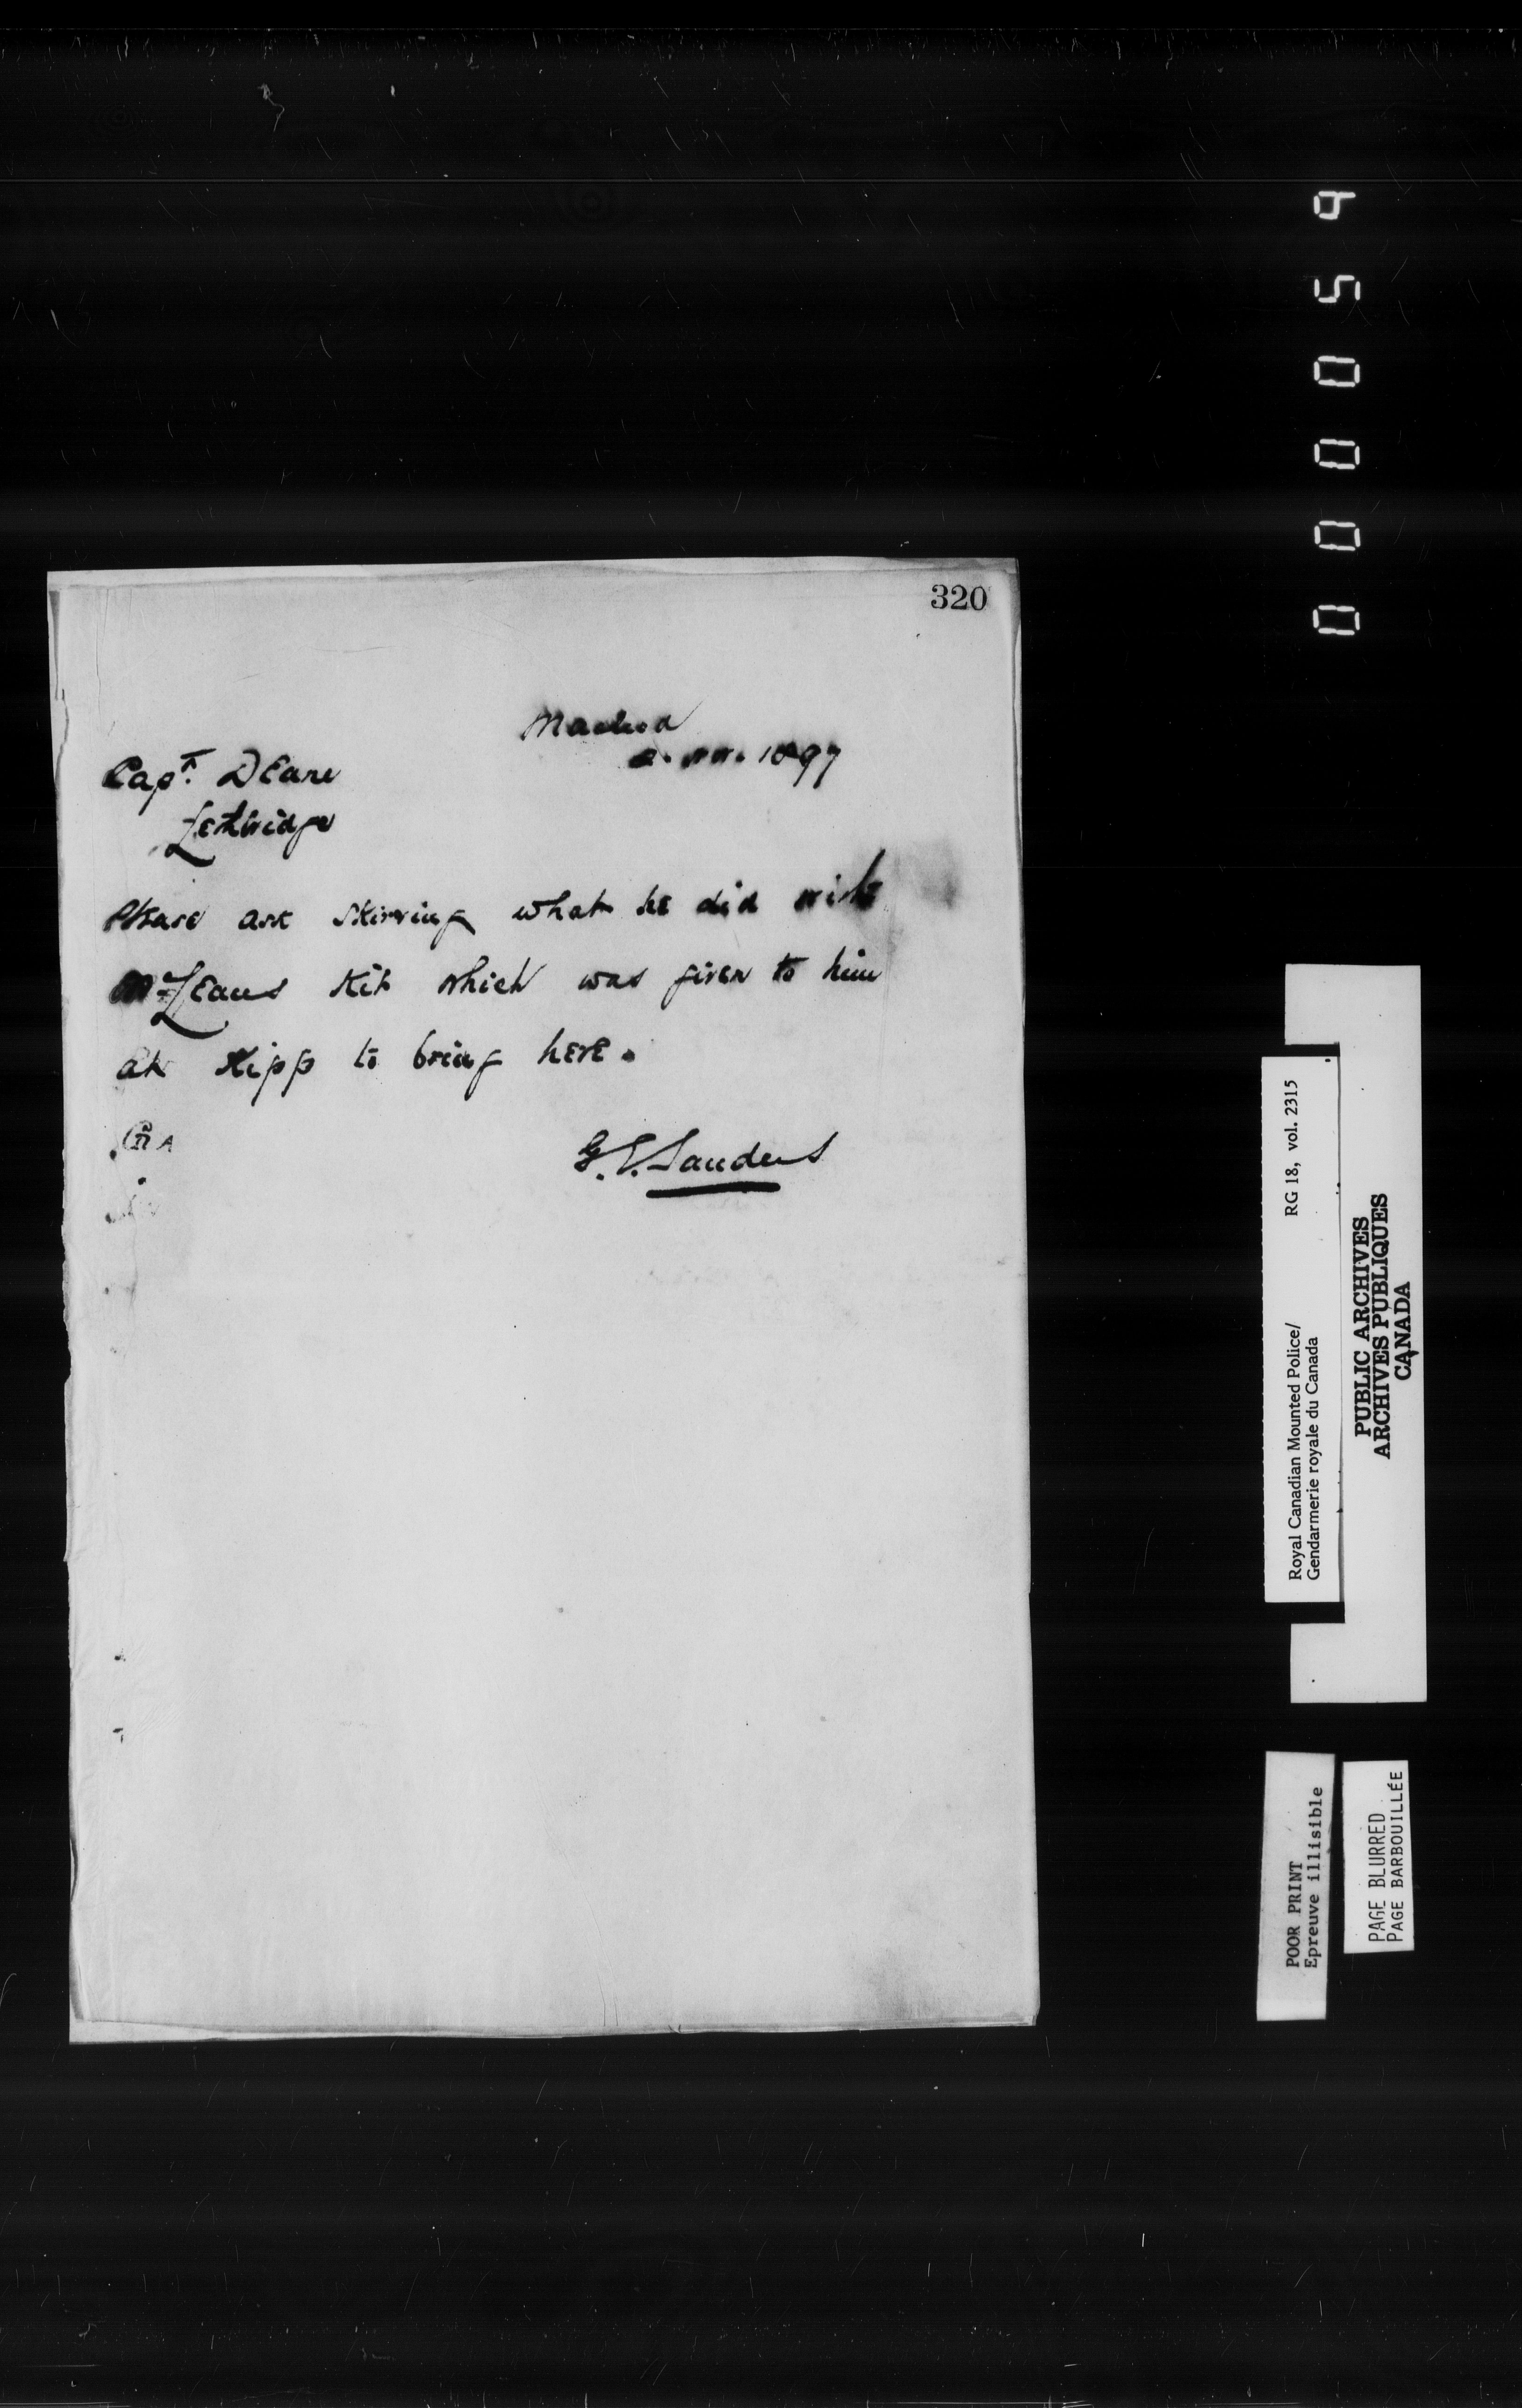 320
Macleod
1897
Capt. Deane
Lethbridge
Please ask Skirving what he did with
McLeans kit which was given to him
at Kipp to bring here.
G. E. Sanders
000059
Royal Canadian Mounted Police/ RG 18, vol. 2315
Gendarmerie royale du Canada
PUBLIC ARCHIVES
ARCHIVES PUBLIQUES
CANADA
POOR PRINT
Epreuve illisible
PAGE BLURRED
PAGE BARBOUILLÉE